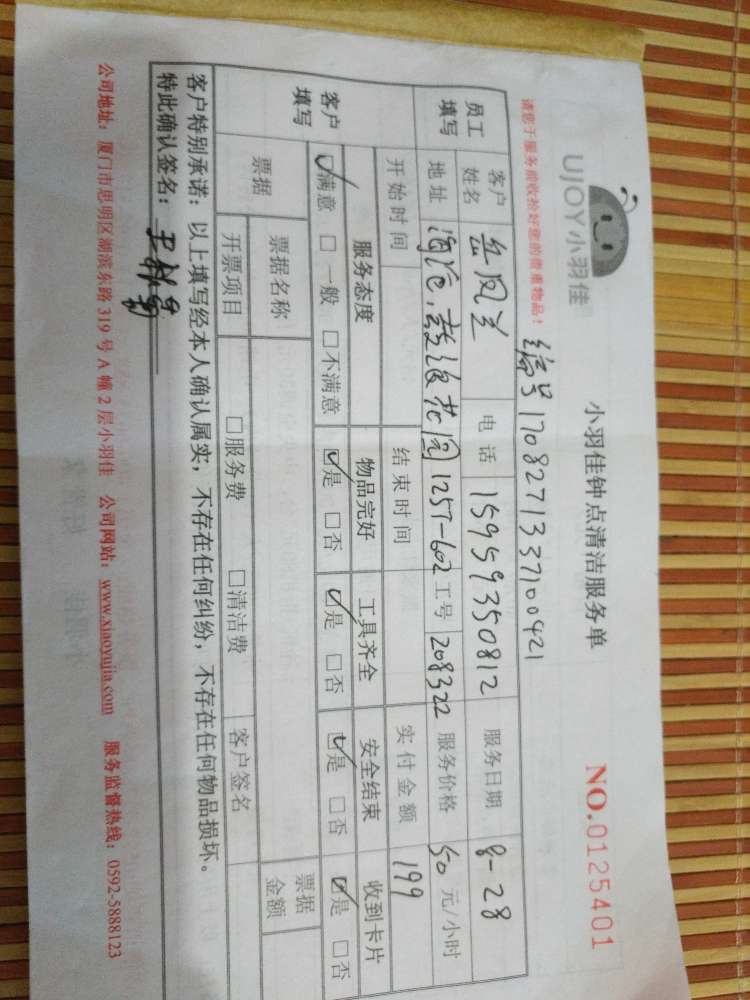 UJOY小羽佳
小羽佳钟点清洁服务单
NO.0125401
请您于服务前收拾好您的贵重物品!
编号1708271337100421
员工填写 客户姓名 岳凤兰 电话 15959350812 服务日期 8-28
地址 海沧, 602 工号 208322 服务价格 50 元/小时
开始时间 结束时间 实付金额 199
客户填写 服务态度 物品完好 工具齐全 安全结束 收到卡片
☑满意 □一般 □不满意 ☑是 □否 ☑是 □否 ☑是 □否 ☑是 □否
票据 票据名称 票据金额
开票项目 □服务费 □清洁费 客户签名
客户特别承诺:以上填写经本人确认属实,不存在任何纠纷,不存在任何物品损坏。
特此确认签名:
公司地址:厦门市思明区湖滨东路 319 号 A 幢 2 层小羽佳 公司网站:www.xiaoyujia.com 服务监督热线:0592-5888123